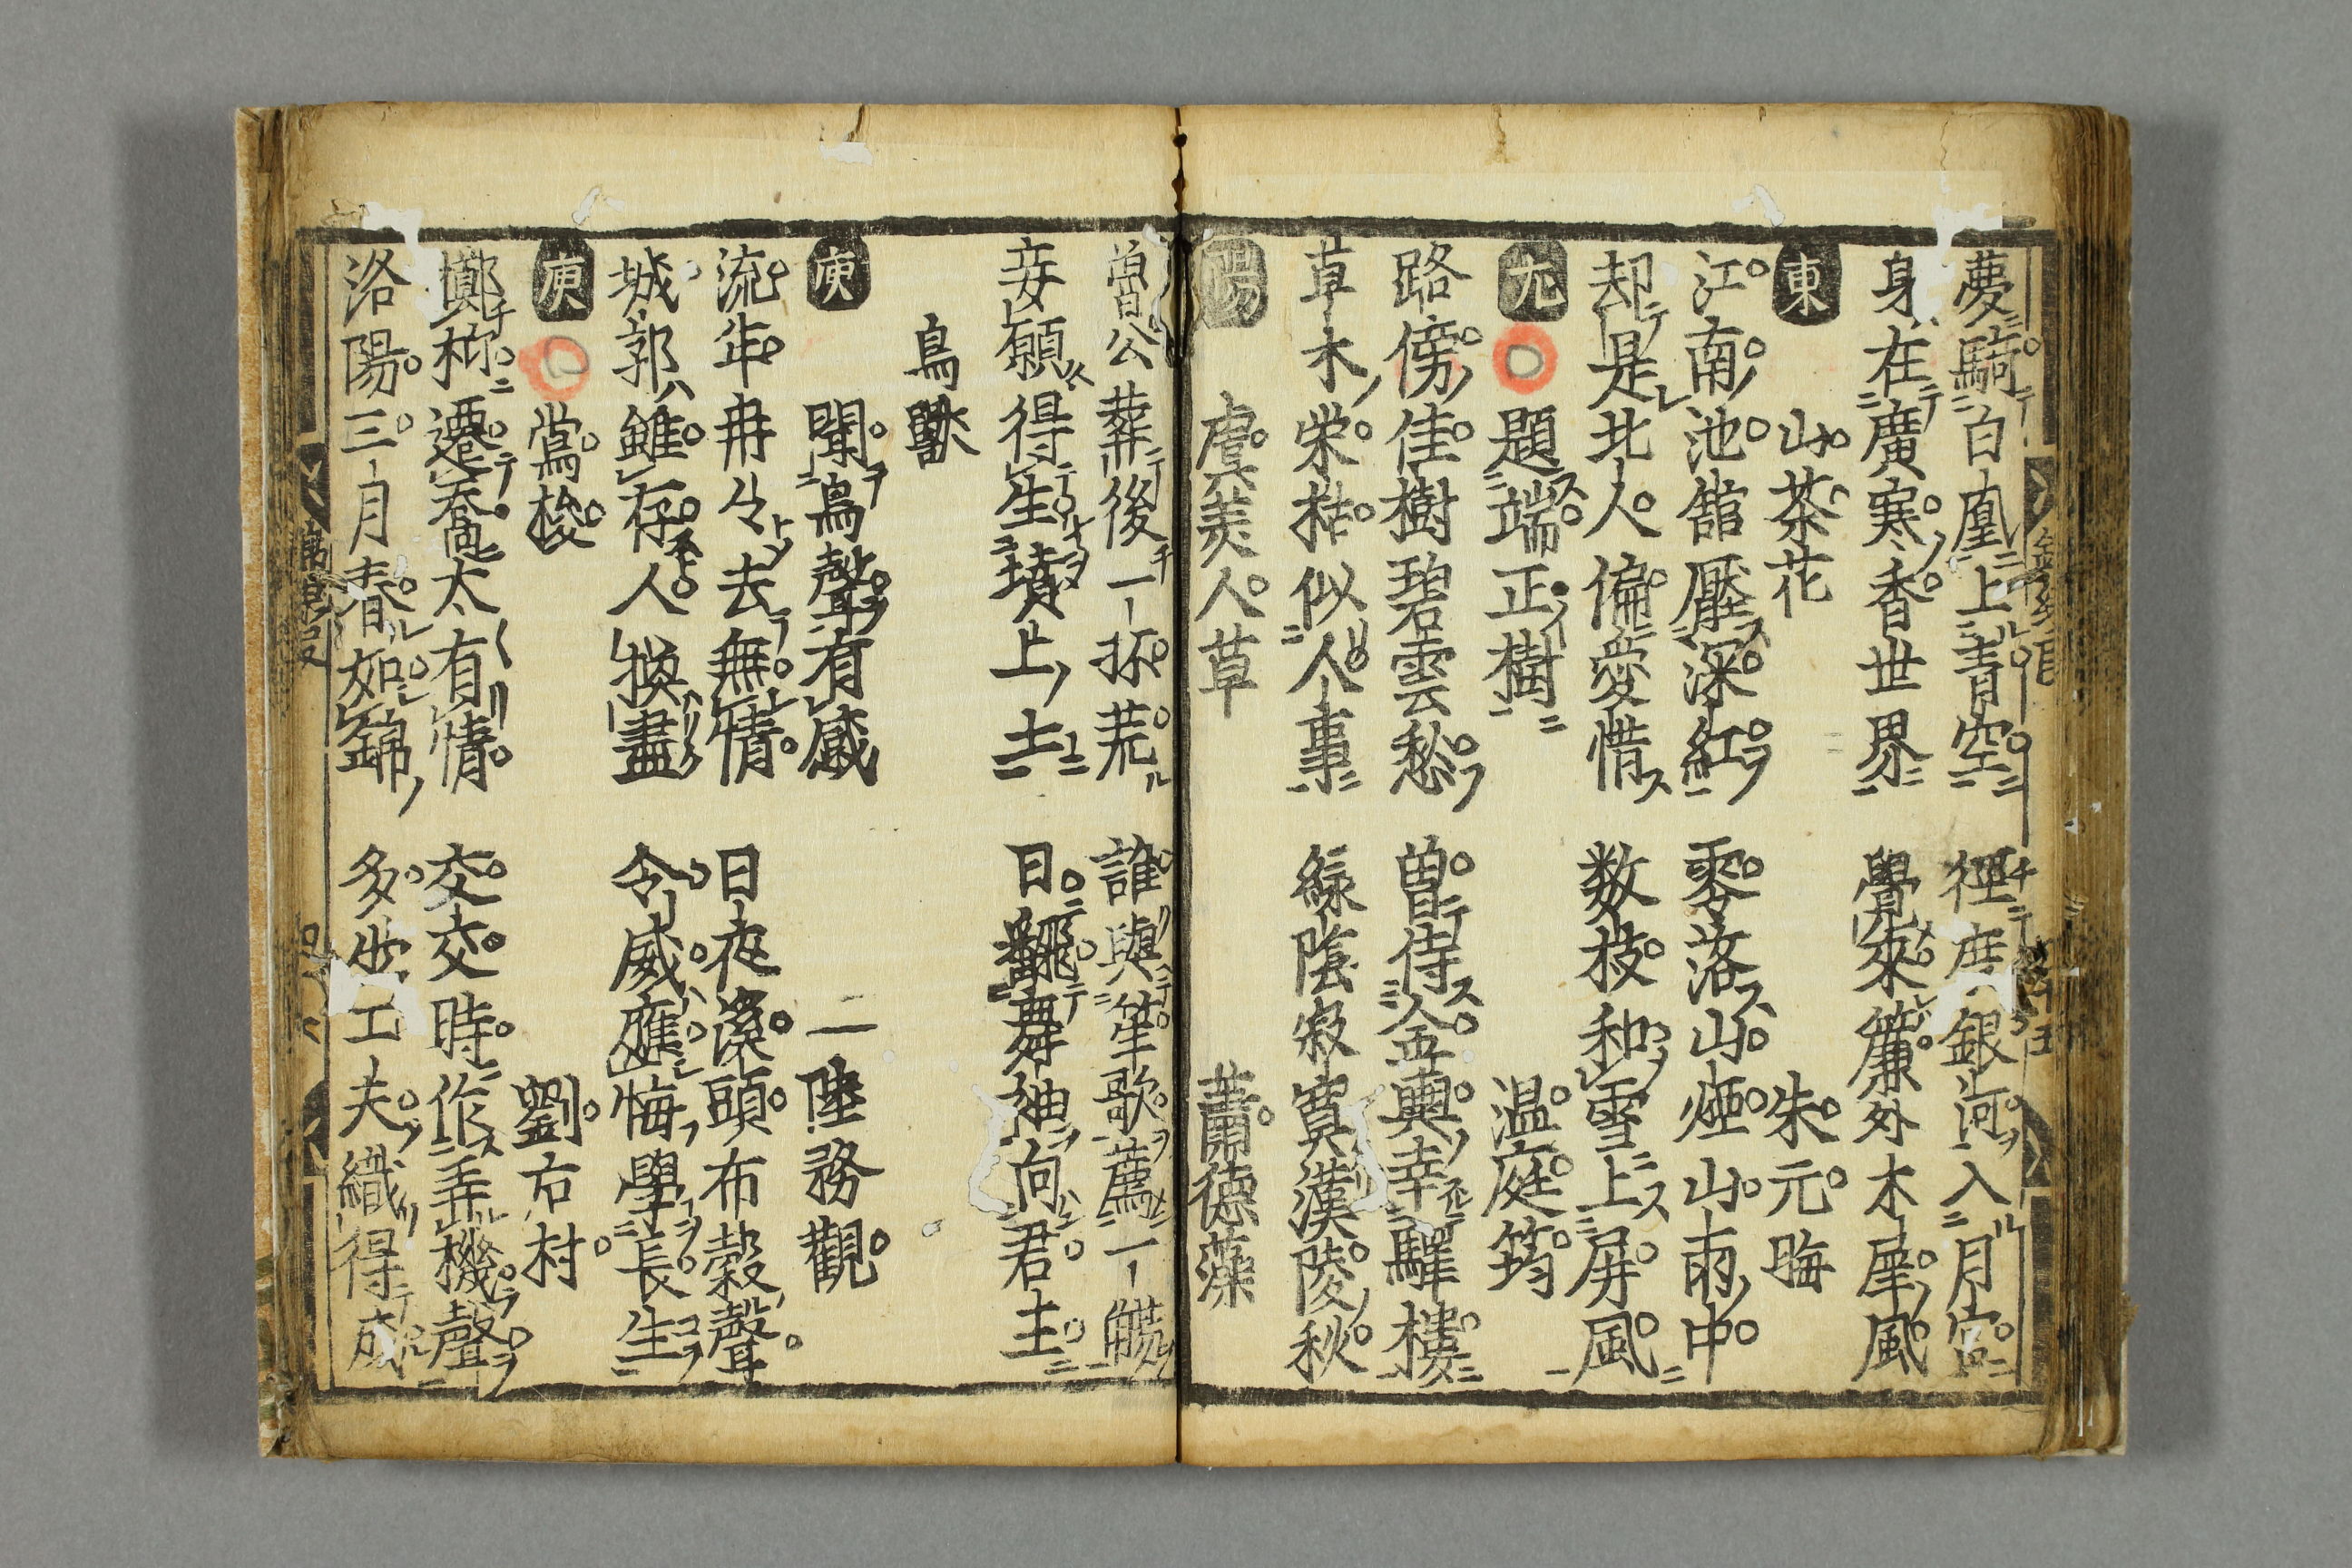 夢騎白凰上青空 徑度銀河入月宮
身在廣寒香世界 覺來簾外木犀風
東 山茶花 朱元晦
江南池館壓深紅 零落山煙山雨中
却是北人偏愛惜 数枝和雪上屏風
尤 題端正樹 温庭筠
路傍佳樹碧雲愁 曽侍金輿幸驛樓
草木榮枯似人事 綠陰寂寞漢陵秋
陽 虞美人草 蕭德藻
魯公葬後一抔荒 誰與笙歌薦一觴
妾願得生墳上土 日翻舞袖向君王
鳥獸
庚 聞鳥聲有感 陸務觀
流年冉々去無情 日夜溪頭布穀聲
城郭雖存人換盡 令威應悔學長生
庚 鶯梭 劉右村
擲柳遷喬太有情 交交時作弄機聲
洛陽三月春如錦 多少工夫織得成